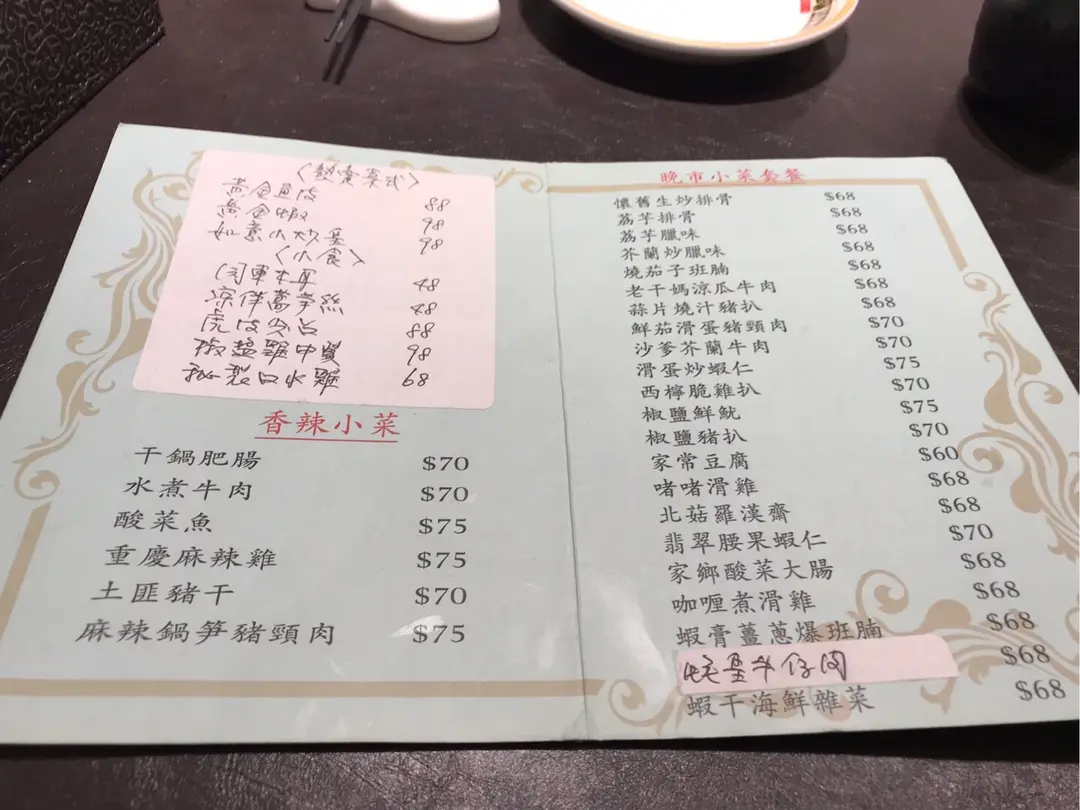 〈熱賣菜式〉
黃金魚皮 88
黃金蝦 98
如意小炒皇 98
〈小食〉
牛耳 48
涼伴萵笋絲 48
虎皮 88
椒鹽雞中翼 98
秘製口水雞 68
香辣小菜
干鍋肥腸 $70
水煮牛肉 $70
酸菜魚 $75
重慶麻辣雞 $75
土匪豬干 $70
麻辣鍋笋豬頸肉 $75
晚市小菜套餐
懷舊生炒排骨 $68
荔芋排骨 $68
荔芋臘味 $68
芥蘭炒臘味 $68
燒茄子班腩 $68
老干媽涼瓜牛肉 $68
蒜片燒汁豬扒 $68
鮮茄滑蛋豬頸肉 $70
沙爹芥蘭牛肉 $70
滑蛋炒蝦仁 $75
西檸脆雞扒 $70
椒鹽鮮魷 $75
椒鹽豬扒 $70
家常豆腐 $60
啫啫滑雞 $68
北菇羅漢齋 $68
翡翠腰果蝦仁 $70
家鄉酸菜大腸 $68
咖喱煮滑雞 $68
蝦膏薑蔥爆班腩 $68
蚝皇牛仔肉 $68
蝦干海鮮雜菜 $68